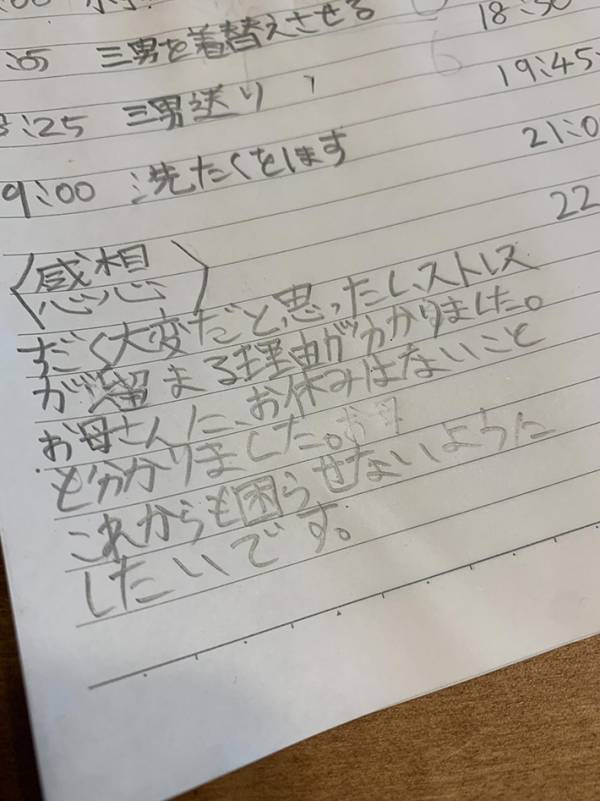 :05 三男を着替えさせる
18:30
:25 三男送り
19:45
9:00 洗たくをします
21:0
22
〈感想〉
すごく大変だと思ったし、ストレス
が溜まる理由がわかりました。
お母さんに、お休みはないこと
がわかりました。
これからも困らせないように
したいです。